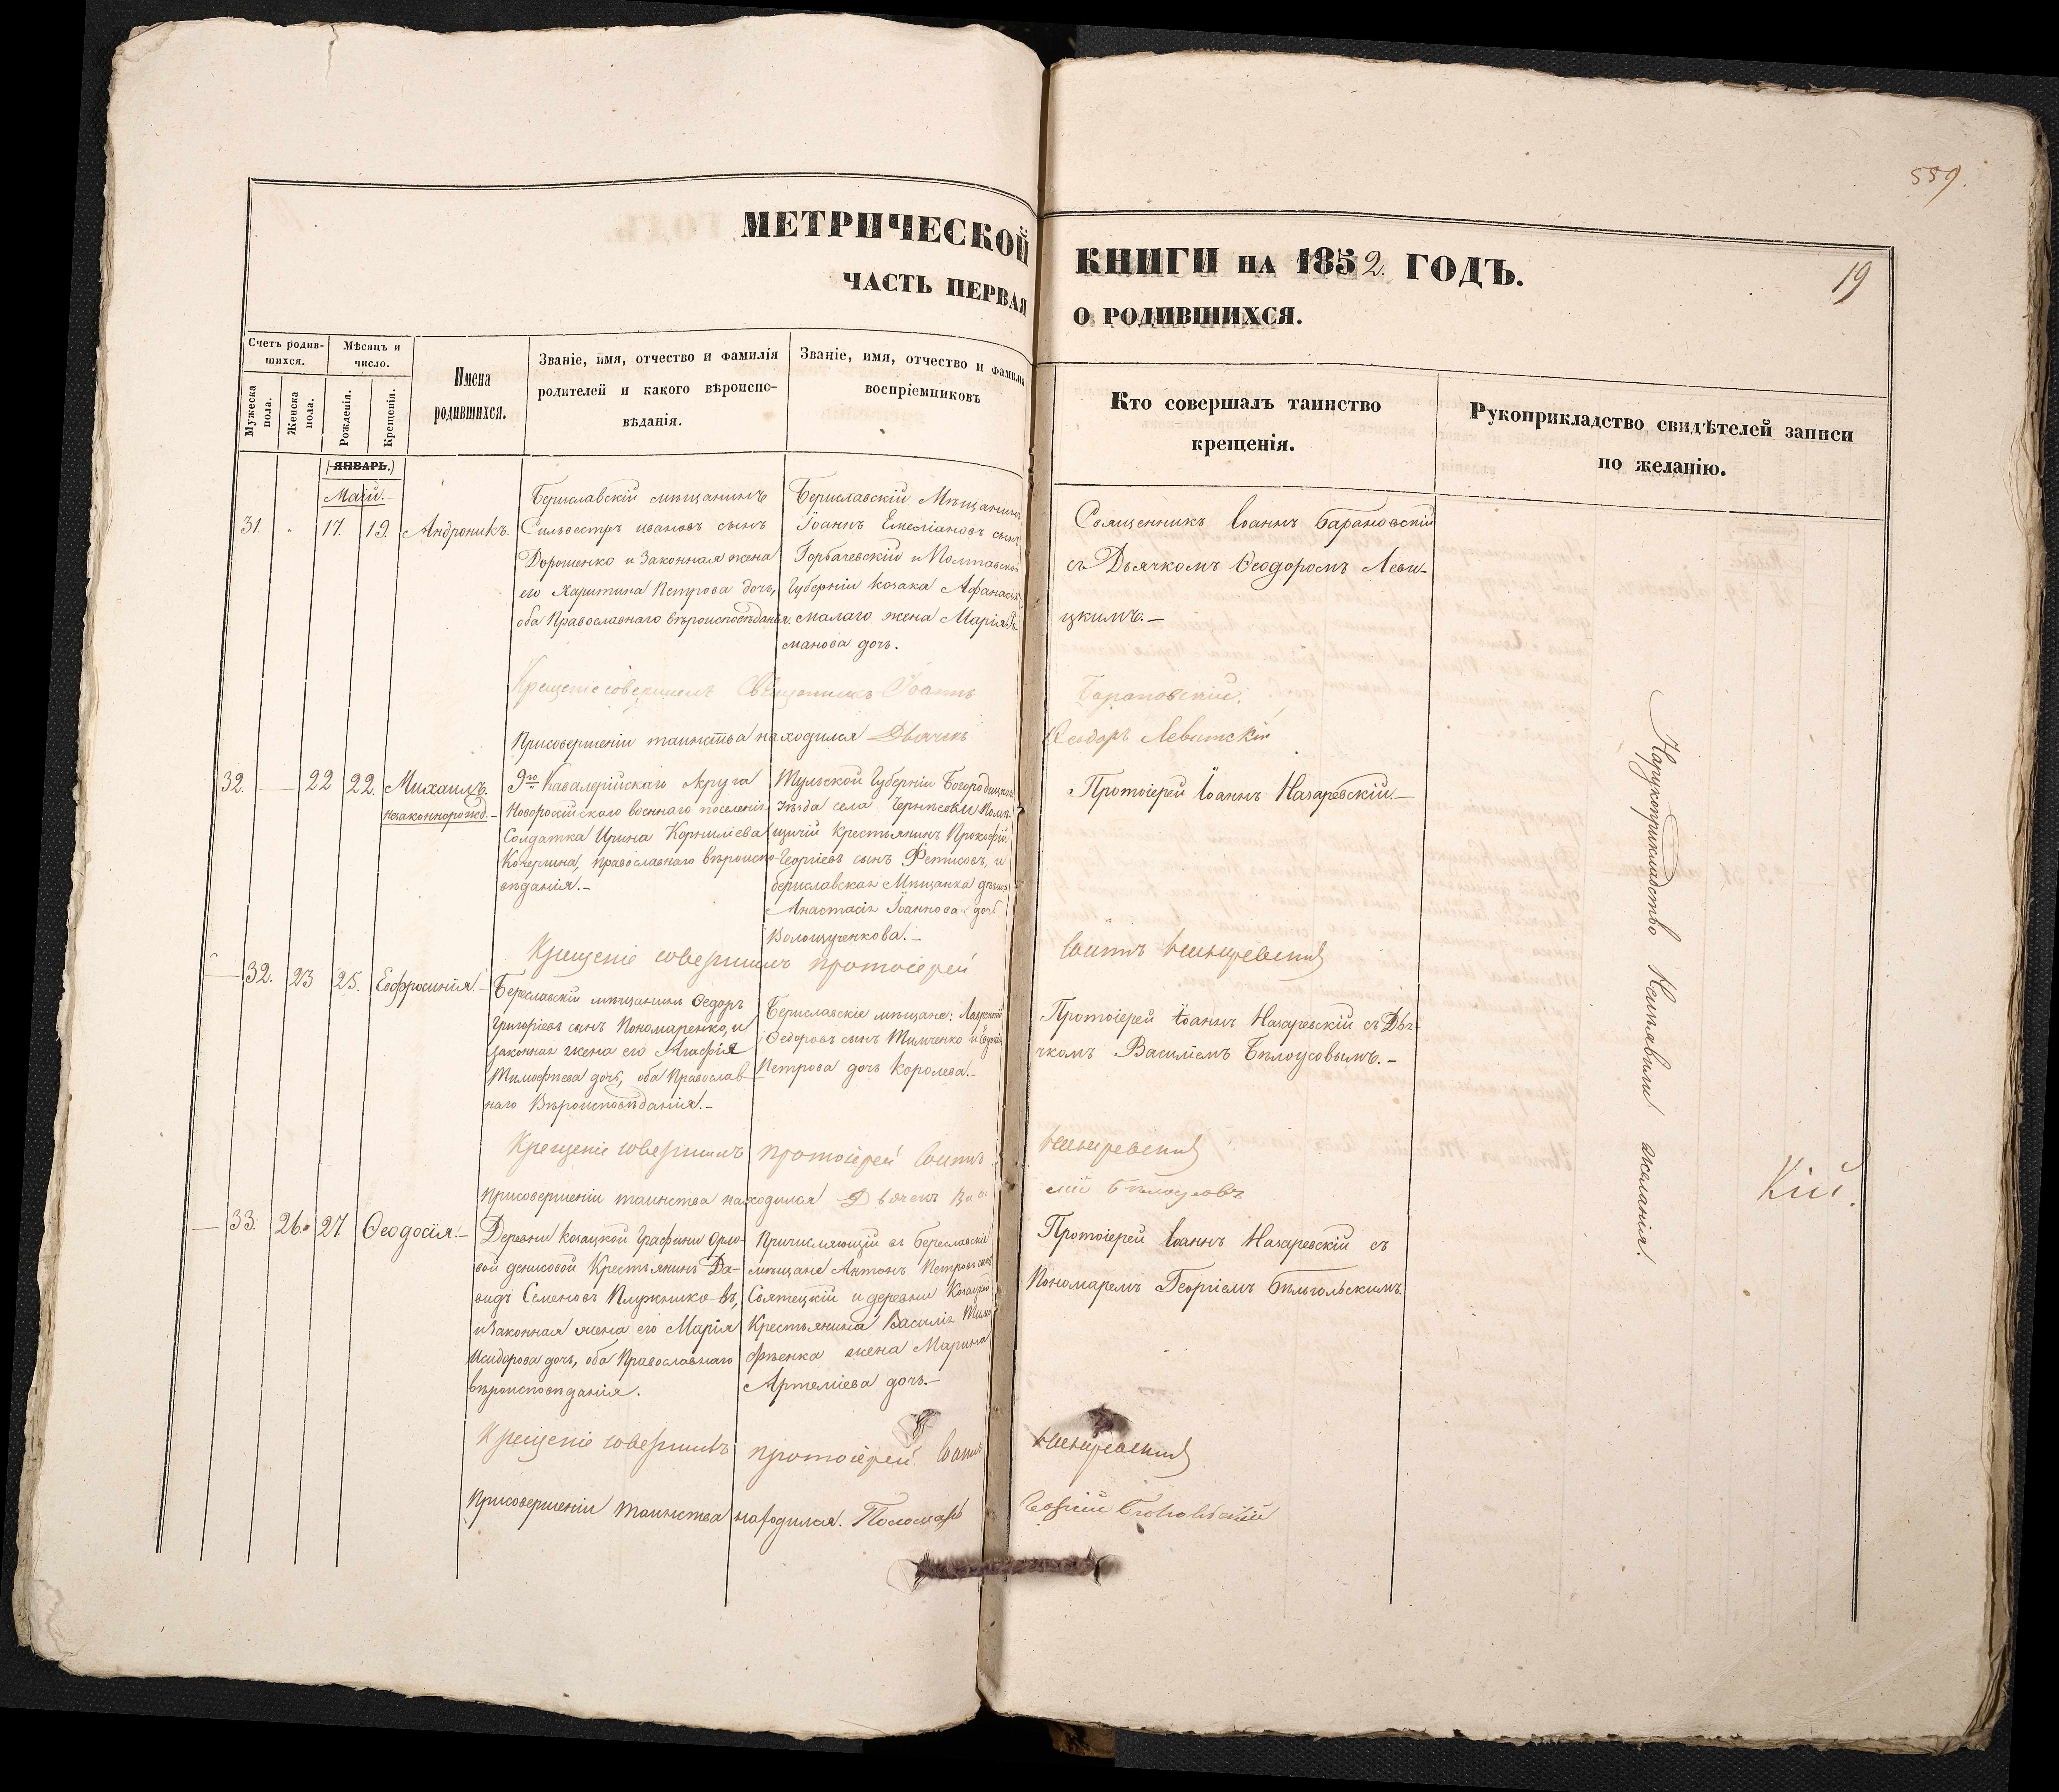 559.
МЕТРИЧЕСКОЙ КНИГИ НА 1852. ГОДЪ.
19
ЧАСТЬ ПЕРВАЯ О РОДИВШИХСЯ.
Счетъ родив-
шихся.
Мужеска пола.
Женска пола.
Мѣсяцъ и
число.
Рожденія.
Крещенія.
Имена
родившихся.
Званіе, имя, отчество и фамилія
родителей и какого вѣроиспо-
вѣданія.
Званіе, имя, отчество и фамилія
воспріемниковъ
Кто совершалъ таинство
крещенія.
Рукоприкладство свидѣтелей записи
по желанію.
(ЯНВАРЬ.)
Маій.
31. 17. 19. Андроникъ.
Бериславскій мѣщанинъ
Сильвестръ ивановъ сынъ
Дорошенко и Законная жена
его Харитина Петрова дочь,
оба Православнаго вѣроисповѣданія.
Бериславскій Мѣщанинъ
Іоаннъ Емеліановъ сынъ
Горбачевскій и Полтавской
Губерніи козака Афанасія
малаго жена Марія
манова дочь.
Священникъ Іоаннъ Барановскій
съ Дьячкомъ Ѳеодоромъ Леви-
цкимъ.—
Крещеніе совершилъ Священникъ Іоаннъ Барановскій.
Присовершеніи таинства находился Дьячекъ Ѳеодоръ Левитскій
32. — 22 22. Михаилъ.
незаконнорожд.—
9го Кавалерійскаго округа
Новоросійскаго военнаго поселенія
Солдатка Ирина Корниліева
Кочергина, православнаго вѣроиспо-
вѣданія.—
Тульской Губерніи Богородицкаго
уѣзда села Помѣ-
щичій крестьянинъ Прокофій
Георгіевъ сынъ Фетисовъ, и
бериславская Мѣщанка дѣвица
Анастасія Іоаннова дочь
Волощученкова.—
Протоіерей Іоаннъ Назаревскій.—
Крещеніе совершилъ протоіерей Іоаннъ Назаревскій
— 32. 23 25. Евфросинія.—
Береславскій мѣщанинъ Ѳедоръ
Григоріевъ сынъ Пономаренко, и
законная жена его Агафія
Тимофѣева дочь, оба Православ-
наго Вѣроисповѣданія.—
Бериславскіе мѣщане: Лаврентій
Ѳедоровъ сынъ Тимченко и
Петрова дочь Королева.—
Протоіерей Іоаннъ Назаревскій съ Дья-
чкомъ Василіемъ Бѣлоусовымъ.—
Крещеніе совершилъ протоіерей Іоаннъ Назаревскій
Присовершеніи таинства находился Дьячекъ Васи лій Бѣлоусовъ
— 33. 26. 27 Ѳеодосія.—
Деревни Козацкой Графини Орло-
вой денисовой Крестьянинъ Да-
видъ Семеновъ Плужниковъ,
и Законная жена его Марія
Исидорова дочь, оба Православнаго
вѣроисповѣданія.
Причисляющій въ береславскіе
мѣщане Антонъ Петровъ сынъ
Святецкій и деревни Козацкой
Крестьянина Василія Тимо
фѣенка жена Марина
Артеміева дочь.—
Протоіерей Іоаннъ Назаревскій съ
Пономаремъ Георгіемъ Бѣльгольскимъ.
Крещеніе совершилъ протоіерей Іоаннъ Назаревскій
Присовершеніи таинства находился. Пономарь
Нарукоприкладство Неизъявили желанія.
Кій.